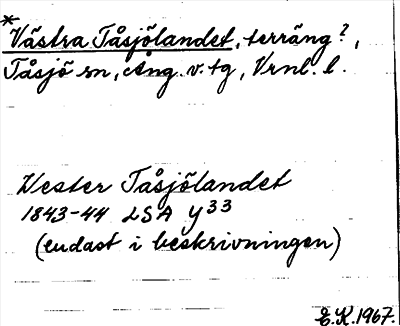 *
Västra Tåsjölandet, terräng?,
Tåsjö sn, Ång. v. tg, Vrnl. l.
Wester Tåsjölandet
1843-44 LSA Y33
(endast i beskrivningen)
E.K. 1967.